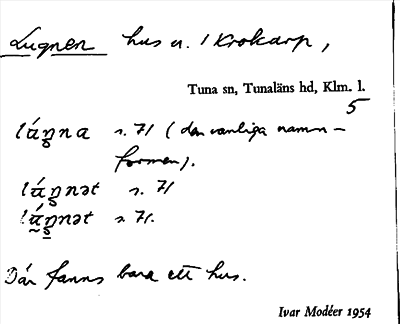 Lugnen hus n. i Krokarp,
Tuna sn, Tunaläns hd, Klm. l.
5
s. 71 (den vanliga namn-
formen).
s. 71
s. 71.
Där fanns bara ett hus.
Ivar Modéer 1954